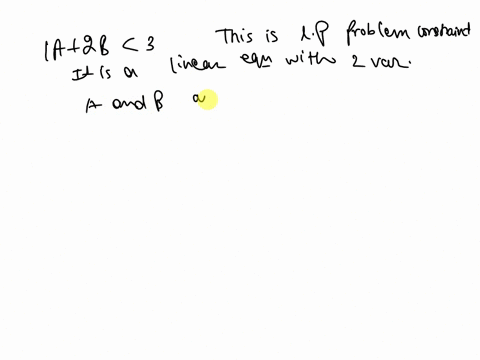 1A+2B < 3 This is L.P problem constraint
It is a linear eqn with 2 var.
A and B a